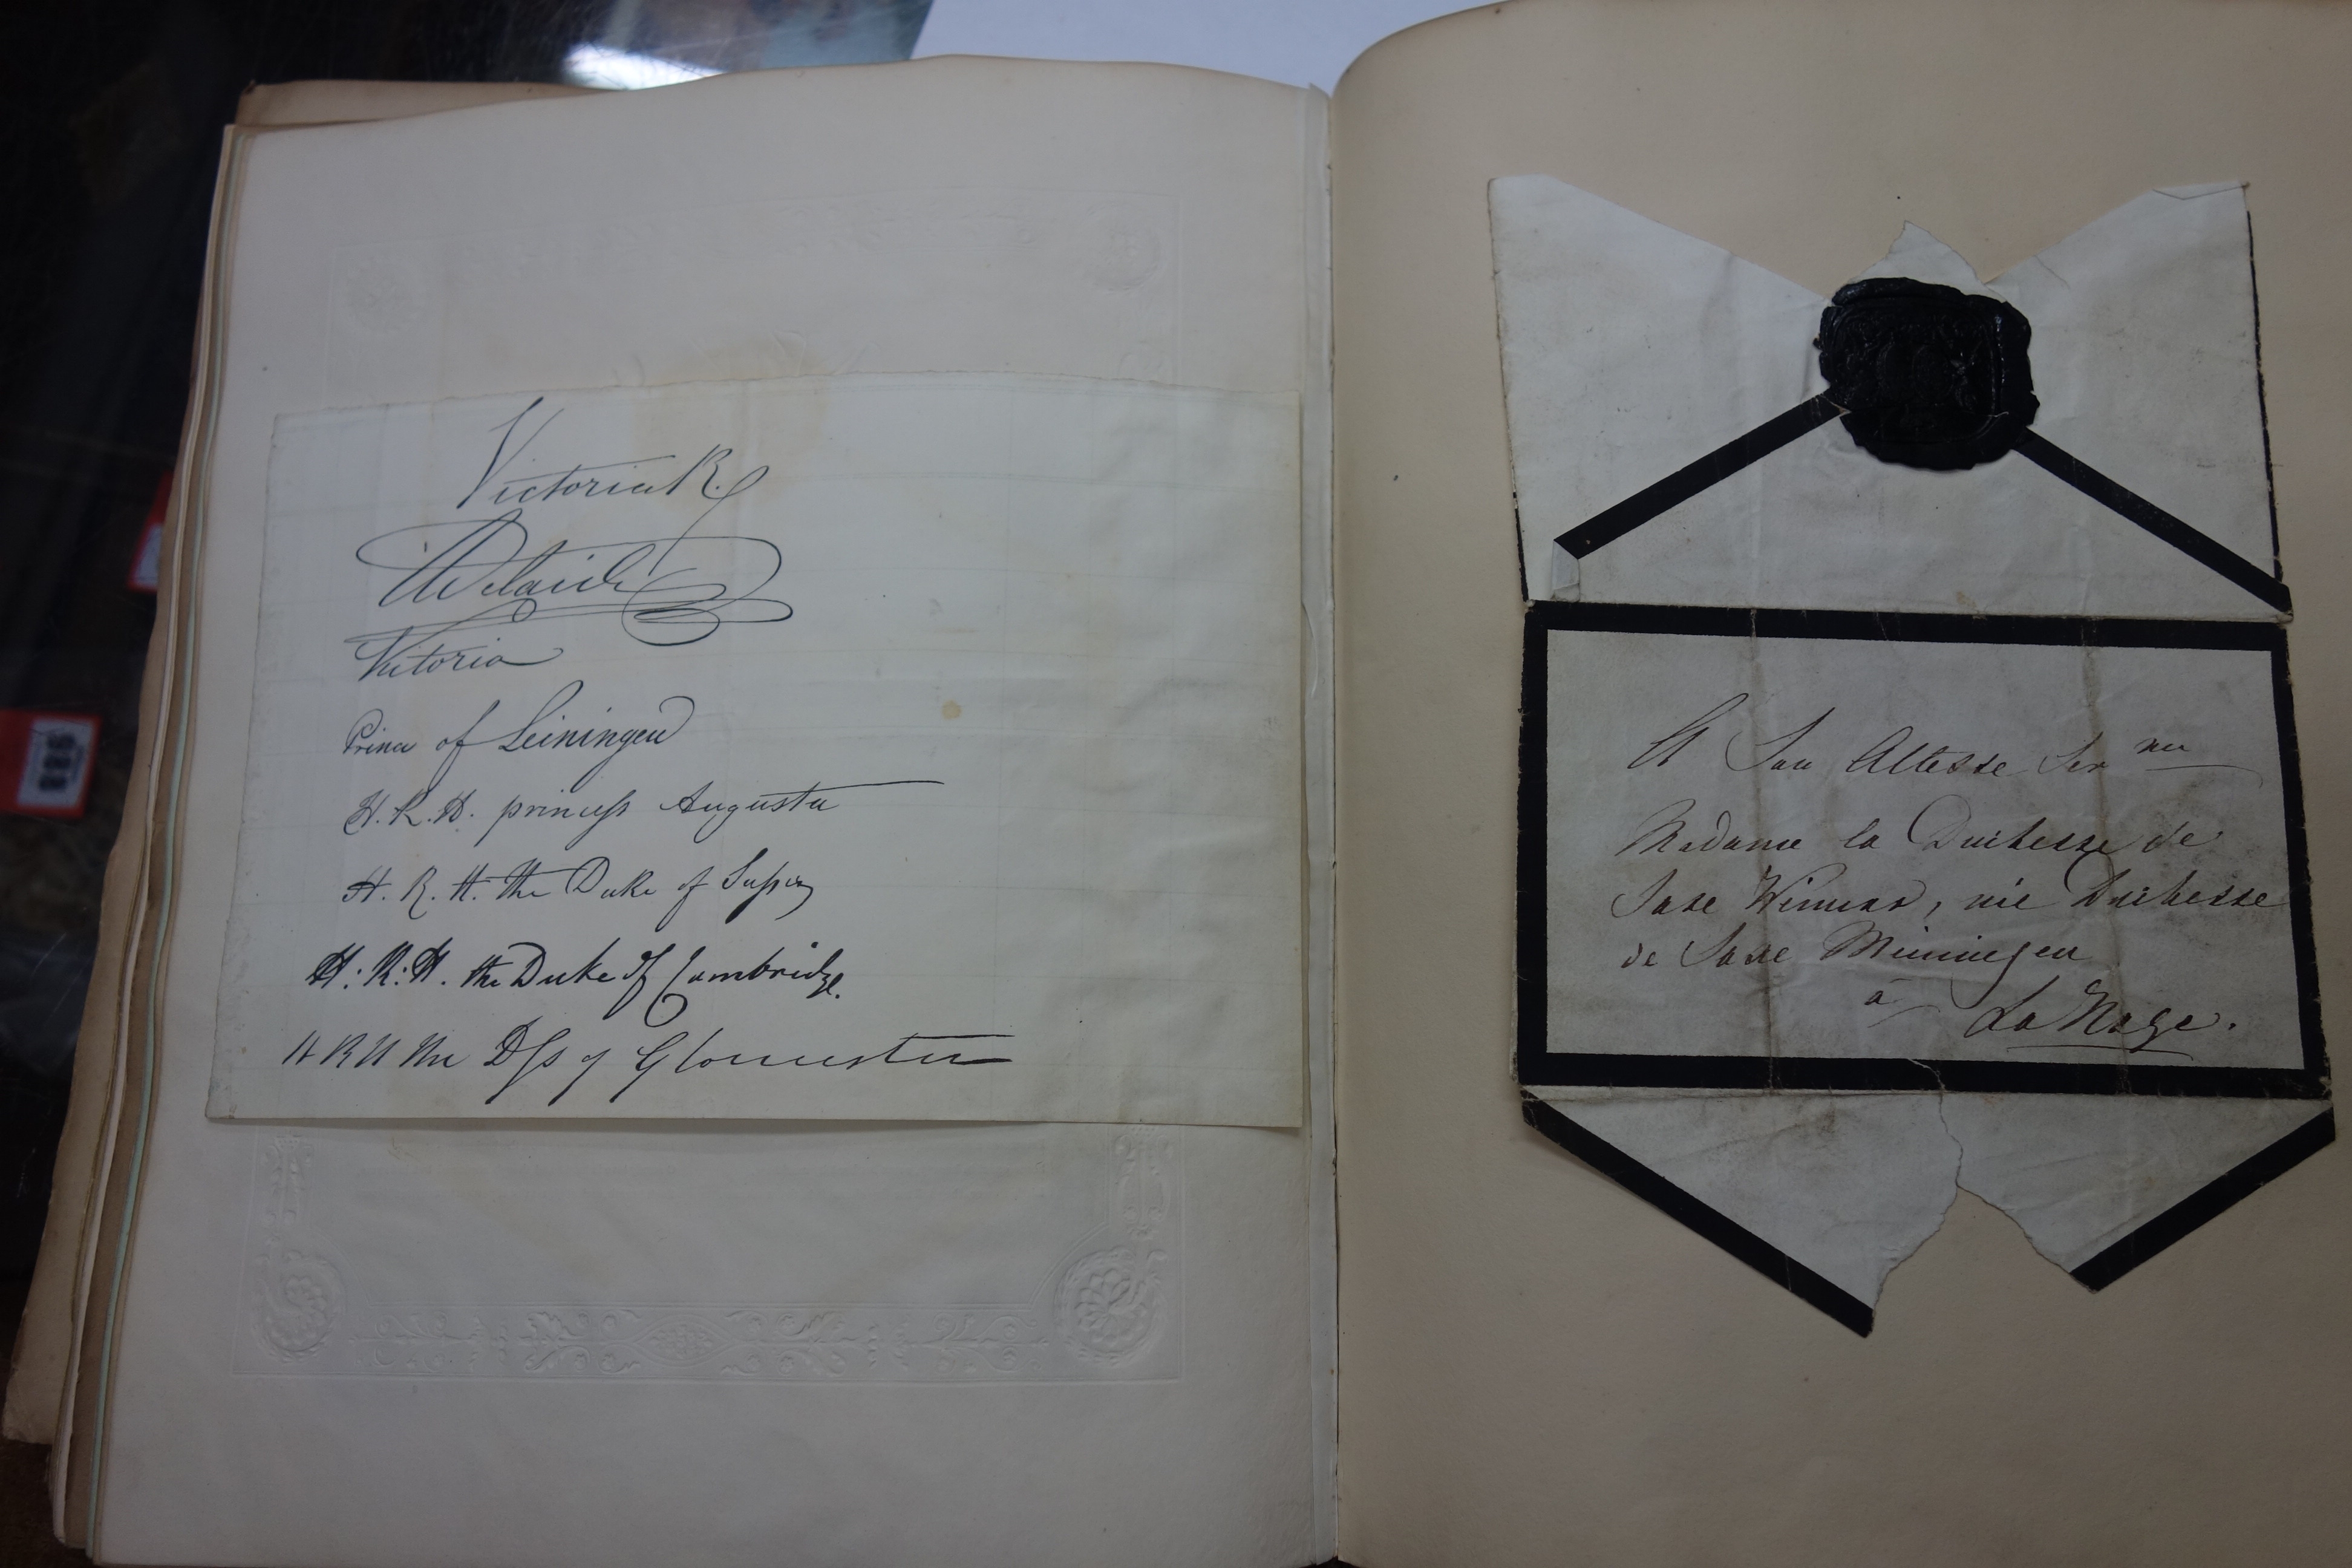 Victoria R.
Adelaide
Victoria
Prince of Leiningen
H. R. H. princess Augusta
H. R. H. the Duke of Sussex
H: R: H. the Duke of Cambridge.
H R H the Dss of Gloucester
A Son Altesse Ser me
Madame la Duchesse de
Saxe Weimar, née Duchesse
de Saxe Meiningen
à La Haye.